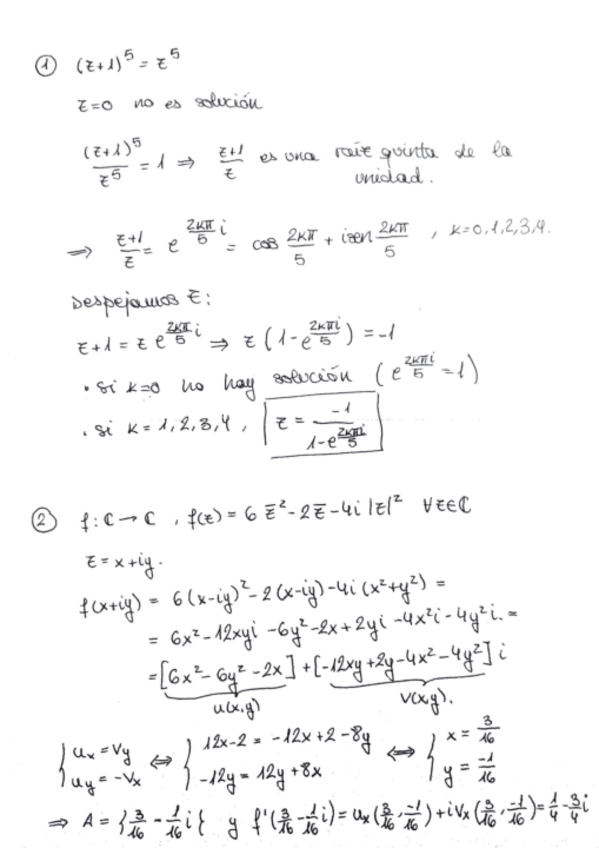 ① (z+1)⁵ = z⁵
z=0 no es solución
(z+1)⁵/z⁵ = 1 ⇒ (z+1)/z es una raíz quinta de la unidad.
⇒ (z+1)/z = e^(2kπ/5 i) = cos 2kπ/5 + i sen 2kπ/5 , k=0,1,2,3,4.
Despejamos z:
z+1 = z e^(2kπ/5 i) ⇒ z(1-e^(2kπi/5)) = -1
• si k=0 no hay solución (e^(2kπi/5) = 1)
• si k = 1,2,3,4, z = -1/(1-e^(2kπi/5))
② f: ℂ → ℂ , f(z) = 6 z̄² - 2 z̄ - 4i |z|² ∀z∈ℂ
z = x+iy.
f(x+iy) = 6(x-iy)² - 2(x-iy) - 4i(x²+y²) =
= 6x² - 12xyi - 6y² - 2x + 2yi - 4x²i - 4y²i. =
= [6x² - 6y² - 2x] + [-12xy + 2y - 4x² - 4y²] i
u(x,y) v(x,y).
{ux = vy ⇔ { 12x-2 = -12x+2-8y ⇔ { x = 3/16
{uy = -vx { -12y = 12y+8x { y = -1/16
⇒ A = {3/16 - 1/16 i} y f'(3/16 - 1/16 i) = ux(3/16, -1/16) + i vx(3/16, -1/16) = 1/4 - 3/4 i